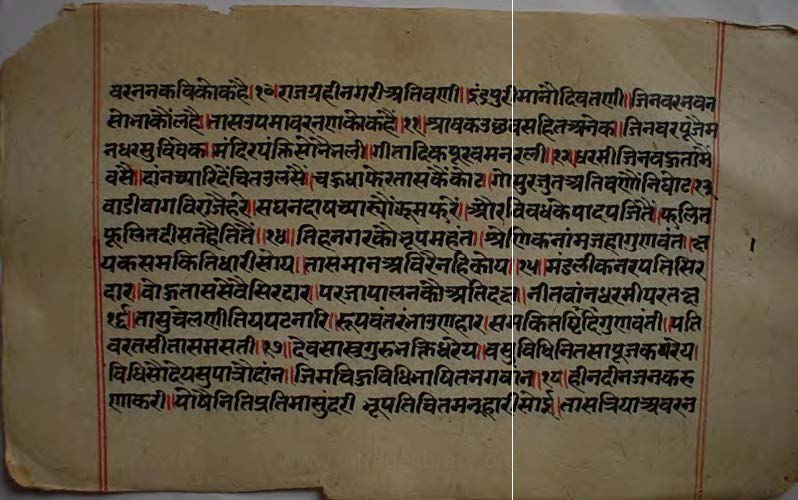 वरननकविकोकहै।१०।राजग्रहीनगरीअतिवणी।इंद्रपुरीमानौदिवतणी।जिनवरनवन
सोनाकौंलहै।तासउपमावरनणकोकहै।११।श्रावकउछवसहितअनेक।जिनवरपूजैम
नधरसुविवेक।मंदिरपंक्तिसोनैनली।गीतादिकपूरवमनरली।१२।धरमीजिनवऊतामै
वसै।दांनच्यारिदेचितउलसै।चऊधाफेरतासकैकोट।गोपुरजुतअतिवणौनिघोट।१३
वाडीवागविराजेहरे।सघनदाषच्यारूं।औरविवधकेपादपजितै।फलित
फूलितदीसतहैतितै।१४।तिहनगरकोनृपमहंत।श्रेणिकनांमजहागुणवंत।क्ष
यकसमकितिधारीसोय।तासमानअविरैनहिकोय।१५।मंडलीकनरपतिसिर
दार।वोऊताससेवैसिरदार।परजापालनकौंअतिदक्ष।नीतवांनधरमीपरतक्ष
।१६।तासुचेलणीतियपटनारि।रूपवंतरंनाउणहार।समकितगुणवंती।पति
वरतसीतासमसती।१७।देवसास्त्रगुरुनक्तिधरेय।वसुविधिनितसापूजकरेय।
विधिसौंदेयसुपात्रांदांन।जिमचिऊविधिनाषितनगवांन।१८।हीनदीनजनकरु
णाकरी।पोषैनितिप्रतिमासुंदरी।नृपतिचितमनुहारीसोई।तासत्रियाअवरन